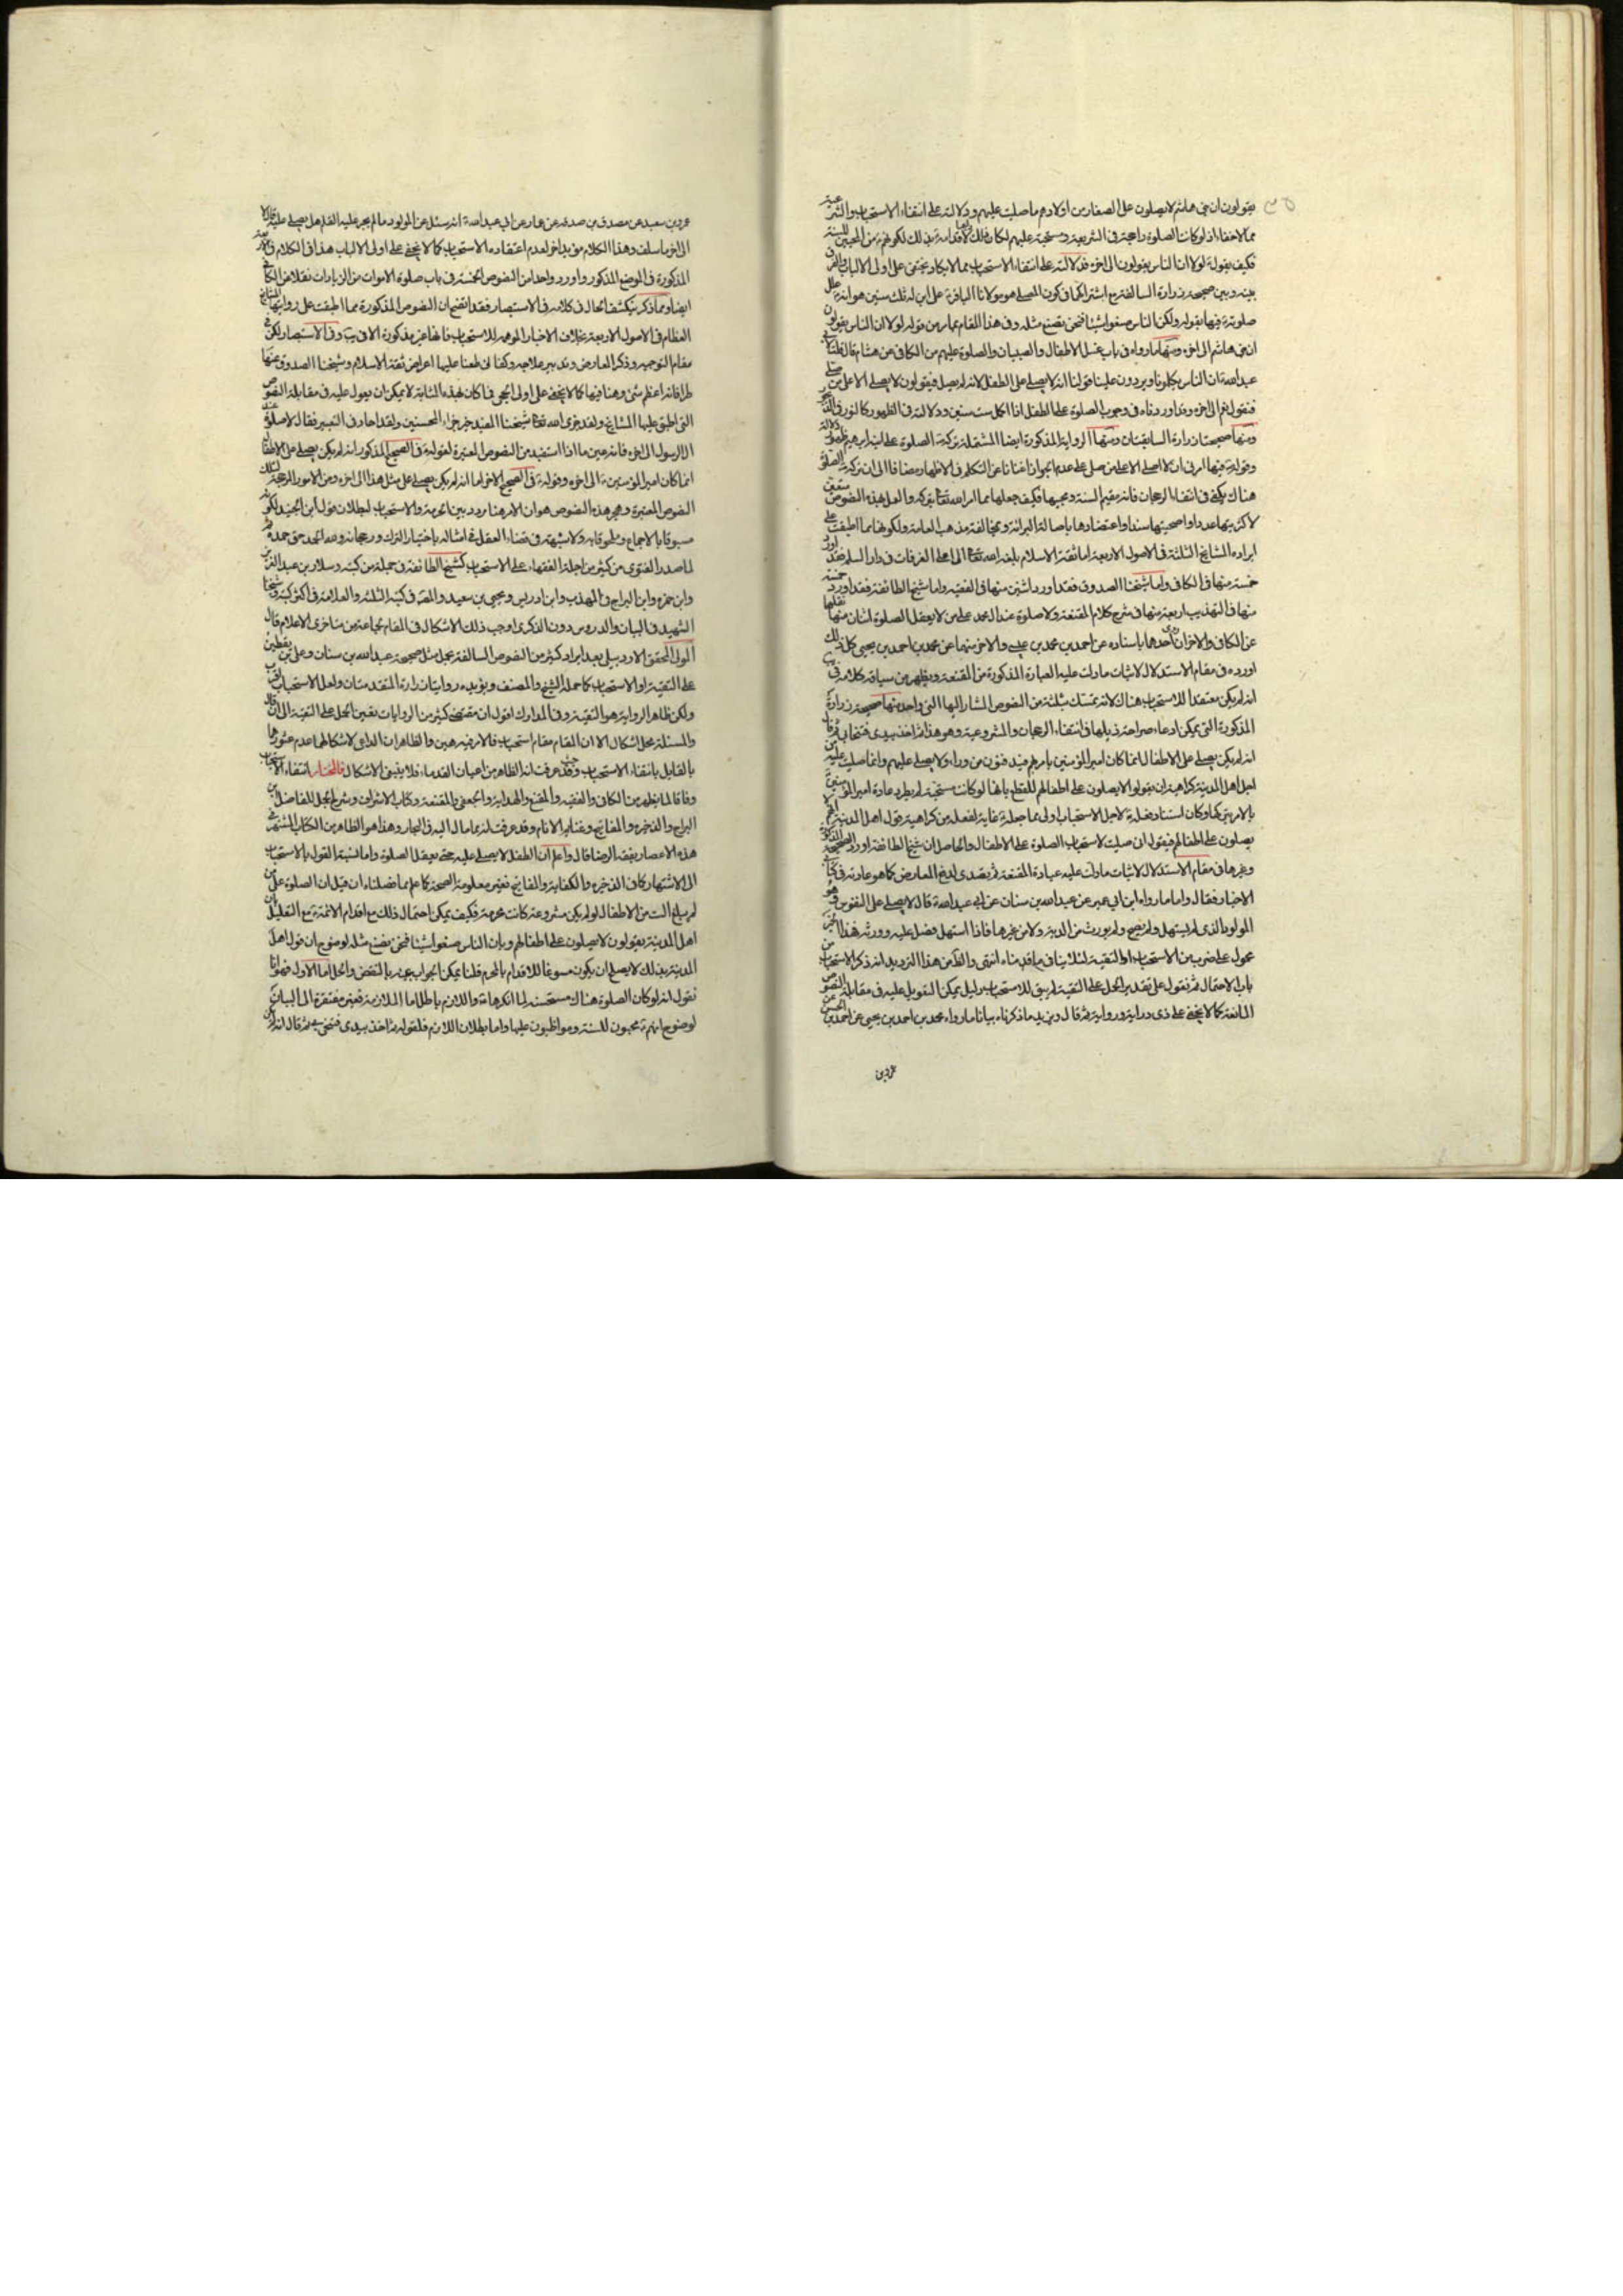 يقولون ان بنى هاشم لا يصلون على الصغار من اولادهم ما صليت عليهم ودلالته على انتفاء الاستحباب
مما لا خفاء اذ لو كانت الصلوة راجحة فى الشريعة ومستحبة عليهم لكان ذلك
فكيف يقول لولا ان الناس يقولون الى اخره فدلالته على انتفاء الاستحباب مما لا يكاد يختفى على اولى الالباب
بينه وبين صحيحة زرارة السالفة مع اشتراكهما فى كون المصلى هو مولانا الباقر على ابن له ثلث سنين هو انه
صلوته فيها بقوله ولكن الناس صنعوا شيئا فنحن نصنع مثله وفى هذا المقام بما مر من قوله لولا ان الناس يقولون
ان بنى هاشم الى اخره ومنها ما رواه فى باب غسل الاطفال والصبيان والصلوة عليهم من الكافى عن هشام قال قلت
عبد الله ان الناس يكلمونا ويردون علينا قولنا انه لا يصلى على الطفل لانه لم يصل فيقولون لا يصلى الا على من صلى
فنقول نعم الى اخره وقد اوردناه فى وجوب الصلوة على الطفل اذا اكمل ست سنين ودلالته فى الظهور كالنور
ومنها صحيحتا زرارة السابقتان ومنها الرواية المذكورة ايضا المشتملة تركه الصلوة على ابنه ابرهيم
وقوله فيها امرنى ان لا اصلى الا على من صلى على عدم الجواز اغنانا عن التكلم فى الاظهار مضافا الى ان تركه الصلوة
هناك يكفى فى انتفاء الرجحان فانه مقيم السنة ومحييها فكيف جعلها مما امر الله تعالى بتركه والعمل بهذه النصوص متعين
لاكثريتها عددا واصحيتها سندا واعتضادها باصالة البرائة ومخالفة مذهب العامة ولكونها مما اطبقت على
ايراده المشايخ الثلثة فى الاصول الاربعة اما ثقة الاسلام بلغه الله تعالى الى اعلى الغرفات فى دار السلم فقد اورد
خمسة منها فى الكافى واما شيخنا الصدوق فقد اورد اثنين منها فى الفقيه واما شيخ الطائفة فقد اورد خمسة
منها فى التهذيب اربعة منها فى شرح كلام المقنعة ولا صلوة عند ال محمد على من لا يعقل الصلوة اثنان منها نقلها
عن الكافى والاخران احدها باسناده عن احمد بن محمد بن عيسى والاخر منهما عن محمد بن احمد بن يحيى كل ذلك
اورده فى مقام الاستدلال لاثبات ما دلت عليه العبارة المذكورة من المقنعة ويظهر من سياقة كلامه فى يب
انه لم يكن معتقدا للاستحباب هناك لانه تمسك بثلثة من النصوص المشار اليها التى واحدة منها صحيحة زرارة
المذكورة التى يمكن ادعاء صراحة ذيلها فى انتفاء الرجحان والمشروعية وهو هذا ثم اخذ بيدى فتنحا بى ثم قال
انه لم يكن يصلى على الاطفال انما كان امير المؤمنين يامر بهم فيدفنون من وراء ولا يصلى عليهم وانما صليت عليه من
اجل اهل المدينة كراهية ان يقولوا لا يصلون على اطفالهم للقطع بانها لو كانت مستحبة لم يطرد عادة امير المؤمنين
بالامر بتركها وكان استناد فعله لاجل الاستحباب اولى مما جعله غاية لفعله من كراهية قول اهل المدينة
يصلون على اطفالهم فيقول انى صليت لاستحباب الصلوة على الاطفال والحاصل ان شيخ الطائفة اورد الصحيحة المذكورة
وغيرها فى مقام الاستدلال لاثبات ما دلت عليه عبارة المقنعة ثم تصدى لدفع المعارض كما هو عادته فى كتابى
الاخبار فقال واما ما رواه ابن ابى عمير عن عبد الله بن سنان عن ابى عبد الله قال لا يصلى على المنفوس وهو
المولود الذى لم يستهل ولم يصح ولم يورث من الدية ولا من غيرها فاذا استهل فصل عليه وورثه فهذا الخبر
محمول على ضرب من الاستحباب او التقية لئلا ينافى ما قدمناه انتهى والظاهر من هذا الترديد انه ذكر الاستحباب من
باب الاحتمال ثم نقول على تقدير الحمل على التقية لم يبق للاستحباب دليل يمكن التعويل عليه فى مقابلة النصوص
المانعة كما لا يخفى على ذى دراية ورواية ثم قال ويزيد ما ذكرناه بيانا ما رواه محمد بن احمد بن يحيى عن احمد بن الحسن عن
عمرو بن
عمرو بن سعيد عن مصدق بن صدقه عن عمار عن ابى عبد الله انه سئل عن المولود ما لم يجر عليه القلم هل يصلى عليه قال لا
الى اخر ما سلف وهذا الكلام مؤيد اخر لعدم اعتقاده الاستحباب كما لا يخفى على اولى الالباب هذا فى الكلام فى
المذكورة فى الموضع المذكور واورد واحدا من النصوص الخمسة فى باب صلوة الاموات من الزيادات نقلا عن الكافى
ايضا ومما ذكر ينكشف الحال فى كلامه فى الاستبصار فقد اتضح ان النصوص المذكورة مما اطبقت على روايتها المشايخ
العظام فى الاصول الاربعة بخلاف الاخبار الموهمة للاستحباب فانها غير مذكورة الا فى يب وفى الاستبصار لكن فى
مقام التوجيه وذكر المعارض وتدبير علاجه وكفانى طعنا عليها اعراض ثقة الاسلام وشيخنا الصدوق عنها
طرا فانه اعظم شئ وهنا فيها كما لا يخفى على اولى الحجى فما كان بهذه المثابة لا يمكن ان يعول عليه فى مقابلة النصوص
التى اطبق عليها المشايخ ولقد جزى الله تعالى شيخنا المفيد خير جزاء المحسنين ولقد اجاد فى التعبير فقال لا صلوة عند
ال الرسول الى اخره فانه عين ما استفيد من النصوص المعتبرة لقوله فى الصحيح المذكور انه لم يكن يصلى على الاطفال
انما كان امير المؤمنين الى اخره وقوله فى الصحيح الاخر اما انه لم يكن يصلى على مثل هذا الى اخره ومن الامور المرجحة لتلك
النصوص المعتبرة وهجر هذه النصوص هو ان الامر هنا مردد بين الحرمة والاستحباب لبطلان قول ابن الجنيد لكونه
مسبوقا بالاجماع وملحوقا به ولا شبهة فى قضاء العقل فى امثاله باختيار الترك ورجحانه ولله الحمد حق حمده ثم
لما صدر الفتوى من كثير من اجلة الفقهاء على الاستحباب كشيخ الطائفة فى جملة من كتبه وسلار بن عبد العزيز
وابن حمزه وابن البراج فى المهذب وابن ادريس ويحيى بن سعيد والمحقق فى كتبه الثلثة والعلامة فى اكثر كتبه وشيخنا
الشهيد فى البيان والدروس دون الذكرى اوجب ذلك الاشكال فى المقام لجماعة من متاخرى الاعلام قال
المولى المحقق الاردبيلى بعد ايراد كثير من النصوص السالفة يحمل مثل صحيحة عبد الله بن سنان وعلى بن يقطين
على التقية او الاستحباب كما حمله الشيخ والمصنف ويؤيده روايتا زرارة المتقدمتان ولعل الاستحباب اقرب
ولكن ظاهر الرواية هو التقية وفى المدارك اقول ان مقتضى كثير من الروايات تعين الحمل على التقية الى ان قال
والمسئلة محل اشكال الا ان المقام مقام استحباب فالامر فيه هين والظاهر ان الداعى لاشكالهما عدم عثورهما
بالقايل بانتفاء الاستحباب وقد عرفت انه الظاهر من اعيان القدماء فلا ينبغى الاشكال فالمختار انتفاء الاستحباب
وفاقا لما يظهر من الكافى والفقيه والمقنع والهداية والجعفى والمقنعة وكتاب الاشراف وشرح الجمل للفاضل ابن
البراج والذخيره والمفاتيح وقد عرفت انه مما مال اليه فى البحار وهذا هو الظاهر من الكتاب المشتهر فى
هذه الاعصار بفقه الرضا قال واعلم ان الطفل لا يصلى عليه حتى يعقل الصلوة واما نسبة القول بالاستحباب
الى الاشتهار كما فى الذخيره والكفاية والمفاتيح فغير معلومة الصحة كما علم مما فصلناه ان قيل ان الصلوة على من
لم يبلغ الست من الاطفال لو لم يكن مشروعة كانت محرمة فكيف يمكن احتمال ذلك مع اقدام الائمة مع التعليل بان
اهل المدينة يقولون لا يصلون على اطفالهم وبان الناس صنعوا شيئا فنحن نصنع مثله لوضوح ان قول اهل
المدينة بذلك لا يصلح ان يكون مسوغا للاقدام بالمحرم قلنا يمكن الجواب عنه بالنقض والحل اما الاول فهو انا
نقول انه لو كان الصلوة هناك مستحسنة لما انكرها واللازم باطل اما الملازمة فغير مفتقرة الى البيان
لوضوح انهم محبون للسنة ومواظبون عليها واما بطلان اللازم فلقوله ثم اخذ بيدى فتنحى بى ثم قال انه لم يكن